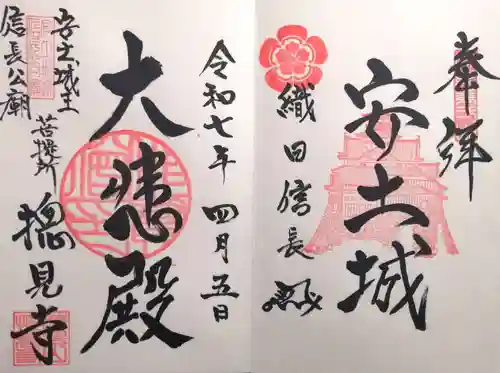 奉拝
安土城
織田信長
令和七年 四月五日
大悲殿
安土城主
信長公廟
菩提所
摠見寺